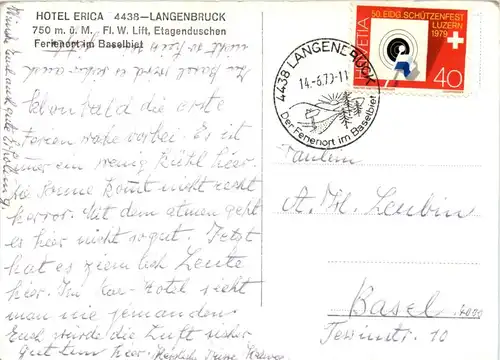 HOTEL ERICA 4438–LANGENBRUCK
750 m. ü. M. Fl. W. Lift, Etagenduschen
Ferienort im Baselbiet
Schon bald die erste
Ferien woche vorbei. Es ist
immer ein wenig kühl hier.
die Sonne komt nicht recht
hervor. Mit dem atmen geht
es hier nicht so gut. Jetzt
hat es ziemlich Leute
hier. Im Kur-Hotel sieht
man nie jemanden.
Euch würde die Luft sicher
gut tun hier. Herzlich
50. EIDG. SCHÜTZENFEST
LUZERN
1979
HELVETIA
40
4438 LANGENBRUCK
14.-6.79-11
Der Ferienort im Baselbiet
Basel 4000
10